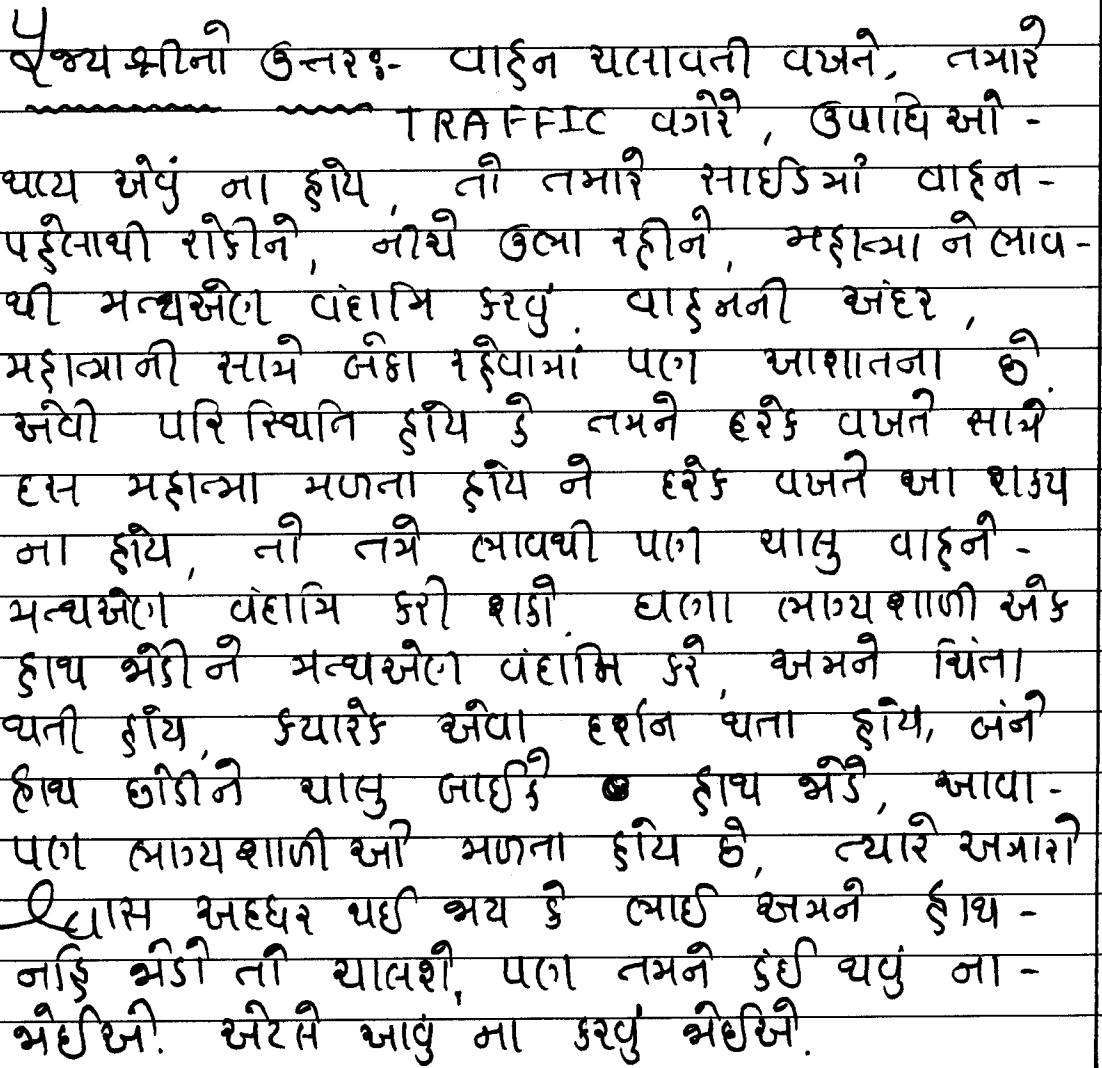 પૂજ્ય શ્રીનો ઉત્તર:- વાહન ચલાવતી વખતે, તમારે
TRAFFIC વગેરે, ઉપાધિઓ -
થાય એવું ના હોય, તો તમારે સાઈડમાં વાહન -
પહેલાથી રોકીને, નીચે ઉભા રહીને, મહાત્મા ને ભાવ-
થી મત્થએણ વંદામિ કરવું. વાહનની અંદર,
મહાત્માની સામે બેઠા રહેવામાં પણ આશાતના છે.
એવી પરિસ્થિતિ હોય કે તમને દરેક વખતે સામે
દસ મહાત્મા મળતા હોય ને દરેક વખતે આ શક્ય
ના હોય, તો તમે ભાવથી પણ ચાલુ વાહને -
મત્થએણ વંદામિ કરી શકો. ઘણા ભાગ્યશાળી એક
હાથ જોડીને મત્થએણ વંદામિ કરે, અમને ચિંતા
થતી હોય, ક્યારેક એવા દર્શન થતા હોય, બંને
હાથ છોડીને ચાલુ બાઈકે હાથ જોડે, આવા -
પણ ભાગ્યશાળીઓ મળતા હોય છે, ત્યારે અમારો
શ્વાસ અદ્ધર થઈ જાય કે ભાઈ અમને હાથ -
નહિ જોડો તો ચાલશે, પણ તમને કંઈ થવું ના -
જોઈએ. એટલે આવું ના કરવું જોઈએ.